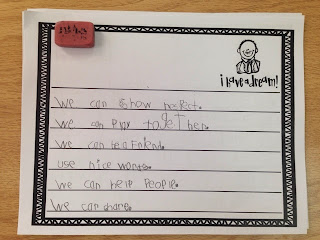 i have a dream!
We can show respect.
We can play together.
We can be a friend.
use nice words.
We can help People.
We can share.